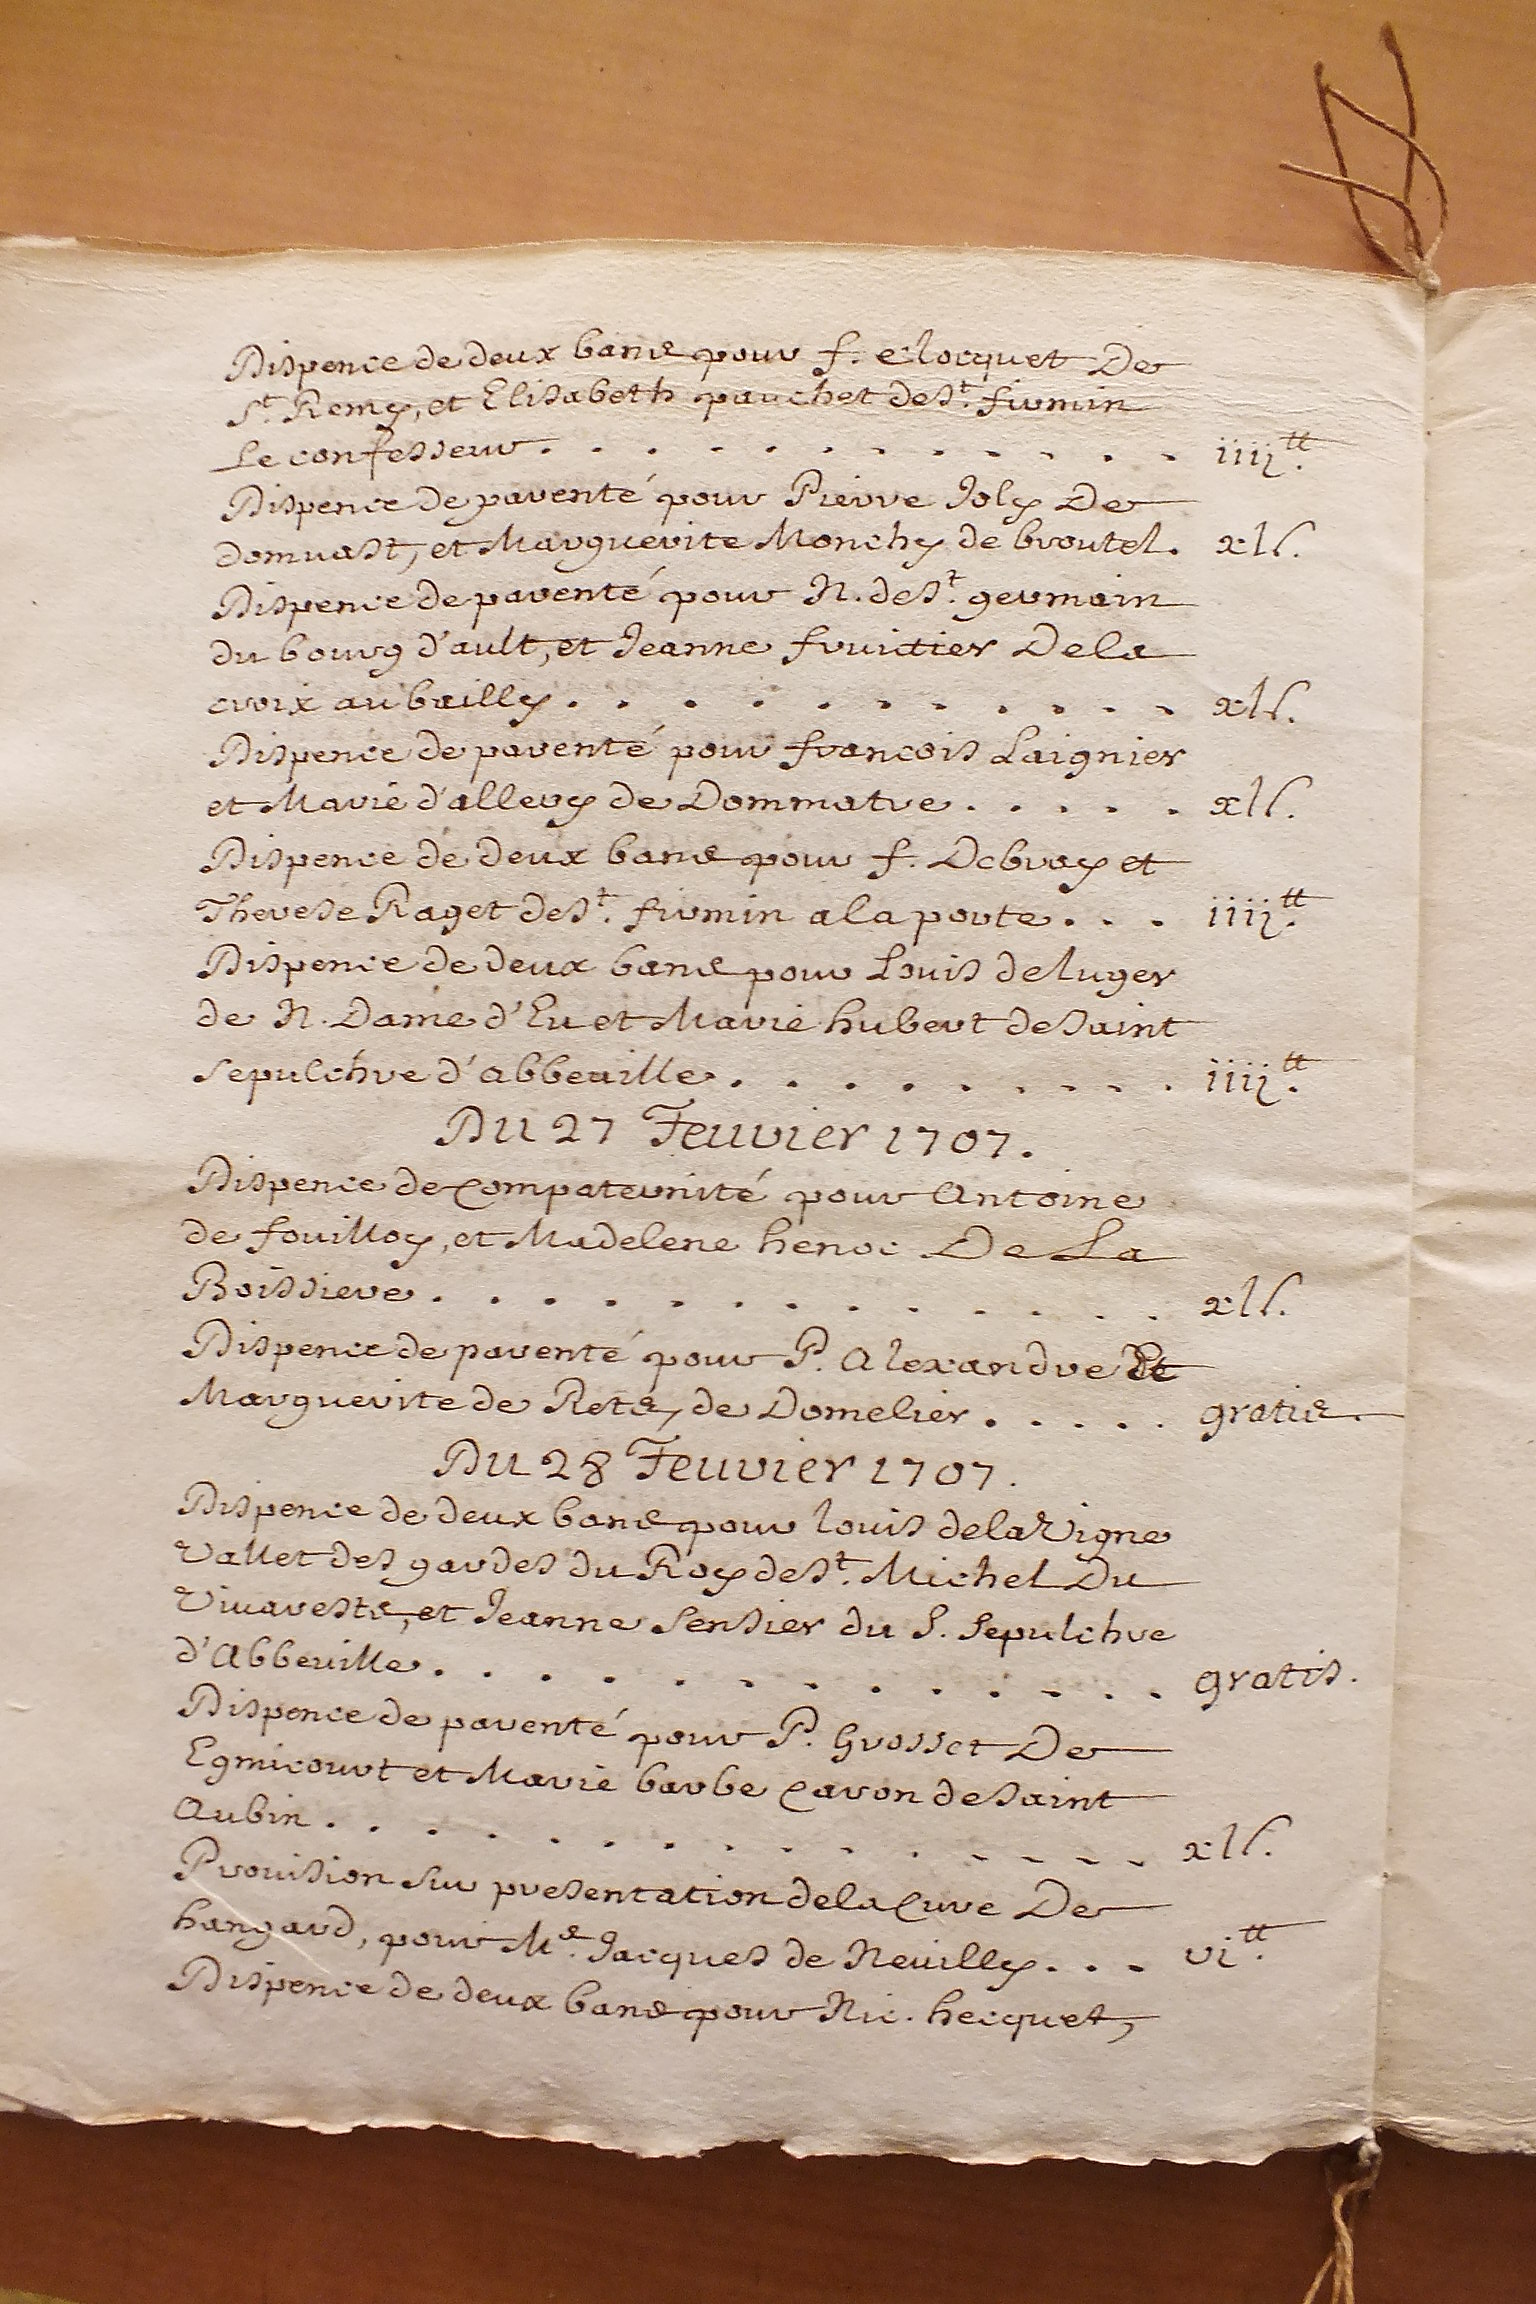 Dispence de deux bans pour f. clocquet De
St. Remy, et Elisabeth pauchet de St. firmin
Le confesseur . . . . . . . . . . . . iiij tt.
Dispence de parenté pour Pierre Joly De
domuast, et Marguerite Monchy de broutel. xls.
Dispence de parenté pour N. de St. germain
du bourg d'ault, et Jeanne fruitier De la
croix au bailly . . . . . . . . . . . xls.
Dispence de parenté pour francois Laignier
et Marie d'allery de Dommatre . . . . . xls.
Dispence de deux bans pour f. Debray et
Therese Raget de St. firmin a la porte . . . iiij tt.
Dispence de deux bans pour Louis deluger
de N. Dame d'Eu et Marie hubert de Saint
Sepulchre d'abbeuille . . . . . . . . . iiij tt.
Du 27 Feurier 1707.
Dispence de Compaternité pour Antoine
de fouilloy, et Madelene henoc De La
Boissiere . . . . . . . . . . . . . xls.
Dispence de parenté pour P. Alexandre Et
Marguerite de Rets, de Domelier . . . . . gratis.
Du 28 Feurier 1707.
Dispence de deux bans pour louis de la Vigne
Vallet des gardes du Roy de St. Michel Du
Viuarests, et Jeanne Sensier du S. Sepulchre
d'Abbeuille . . . . . . . . . . . . . gratis.
Dispence de parenté pour P. Grosset De
Egmicourt et Marie barbe Caron de Saint
Aubin . . . . . . . . . . . . . . xls.
Prouision sur presentation de la Cure De
hangard, pour Me. Jacques de Neuilly . . . vi tt.
Dispence de deux bans pour Nic. hecquet,